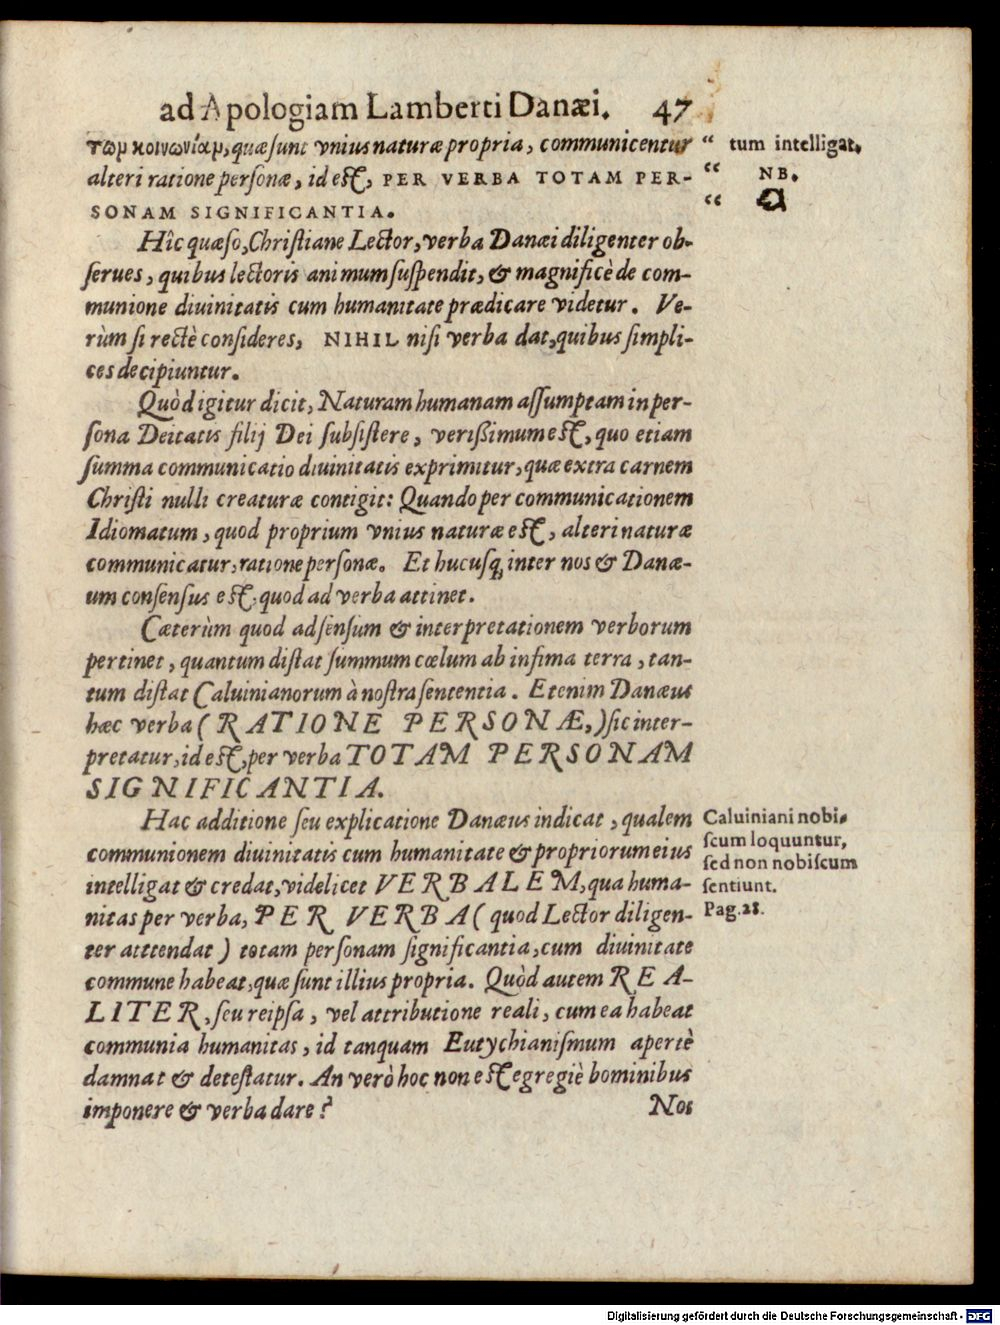 ad Apologiam Lamberti Danæi. 47
των κοινωνίαν, quæ sunt vnius naturæ propria, communicentur “ tum intelligat.
alteri ratione personæ, id est, PER VERBA TOTAM PER- “ NB.
SONAM SIGNIFICANTIA. “
Hîc quæso, Christiane Lector, verba Danæi diligenter ob-
serues, quibus lectoris animum suspendit, & magnificè de com-
munione diuinitatis cum humanitate prædicare videtur. Ve-
rùm si rectè consideres, NIHIL nisi verba dat, quibus simpli-
ces decipiuntur.
Quòd igitur dicit, Naturam humanam assumptam in per-
sona Deitatis filij Dei subsistere, verißimum est, quo etiam
summa communicatio diuinitatis exprimitur, quæ extra carnem
Christi nulli creaturæ contigit: Quando per communicationem
Idiomatum, quod proprium vnius naturæ est, alteri naturæ
communicatur, ratione personæ. Et hucusq, inter nos & Danæ-
um consensus est, quod ad verba attinet.
Cæterùm quod ad sensum & interpretationem verborum
pertinet, quantum distat summum cœlum ab infima terra, tan-
tum distat Caluinianorum à nostra sententia. Etenim Danæus
hæc verba (RATIONE PERSONÆ,) sic inter-
pretatur, id est, per verba TOTAM PERSONAM
SIGNIFICANTIA.
Hac additione seu explicatione Danæus indicat, qualem
communionem diuinitatis cum humanitate & propriorum eius
intelligat & credat, videlicet VERBALEM, qua huma-
nitas per verba, PER VERBA (quod Lector diligen-
ter atttendat) totam personam significantia, cum diuinitate
commune habeat, quæ sunt illius propria. Quòd autem REA-
LITER, seu reipsa, vel attributione reali, cum ea habeat
communia humanitas, id tanquam Eutychianismum apertè
damnat & detestatur. An verò hoc non est egregiè hominibus
imponere & verba dare?
Nos
Caluiniani nobi-
scum loquuntur,
sed non nobiscum
sentiunt.
Pag. 28.
Digitalisierung gefördert durch die Deutsche Forschungsgemeinschaft - DFG